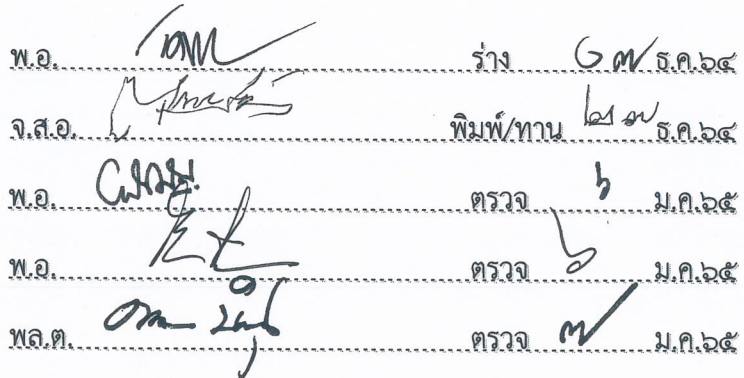 พ.อ. ร่าง ๑๗ ธ.ค.๖๔
จ.ส.อ. พิมพ์/ทาน ๒๗ ธ.ค.๖๔
พ.อ. ตรวจ ๖ ม.ค.๖๕
พ.อ. ตรวจ ๖ ม.ค.๖๕
พล.ต. ตรวจ ๗ ม.ค.๖๕